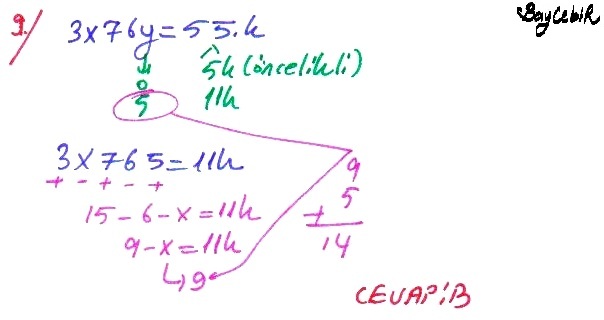 BayCebiR
9.) 3x76y = 55.k
0 5k (öncelikli)
5 11k
3x765 = 11k
+ - + - +
15 - 6 - x = 11k
9 - x = 11k
↳ 9
9
5
+
14
CEVAP: B